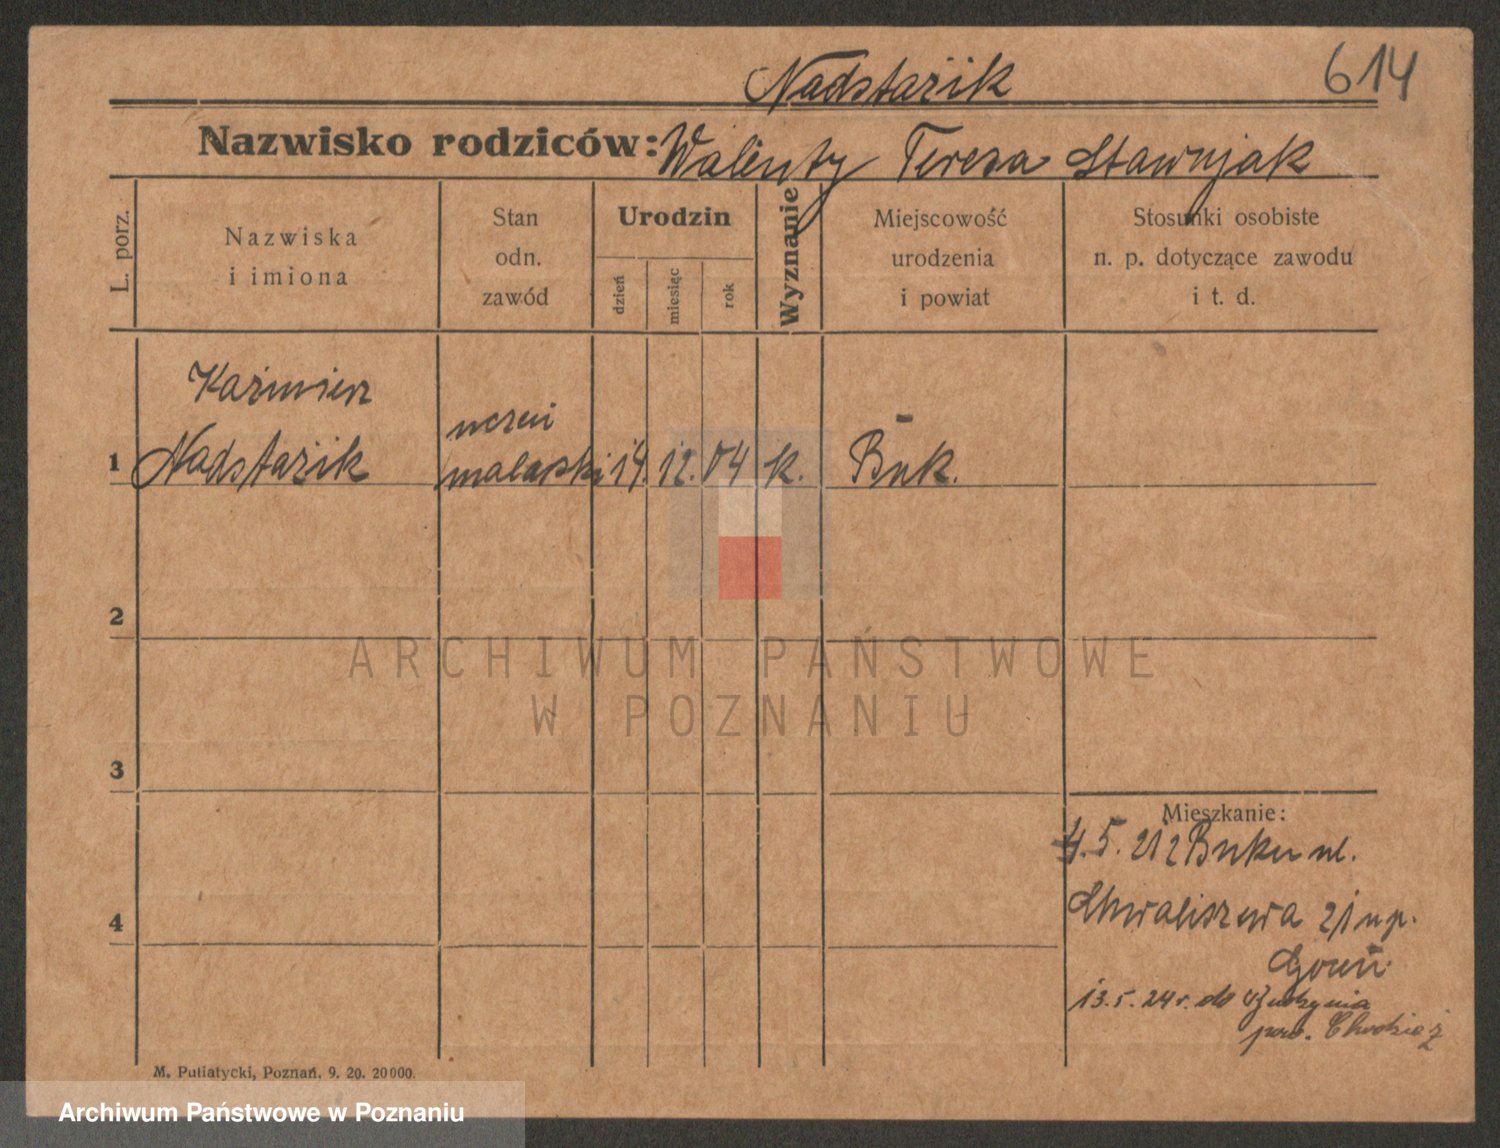 Nadstazik 614
Nazwisko rodziców: Walenty Teresa Stawujak
L. porz.
Nazwiska
i imiona
Stan
odn.
zawód
Urodzin
dzień
miesiąc
rok
Wyznanie
Miejscowość
urodzenia
i powiat
Stosunki osobiste
n. p. dotyczące zawodu
i t. d.
Kazimierz
uczeń
1 Nadstazik malarski 14. 12. 04 k. Buk.
2
3
4
Mieszkanie:
4.5.21 z Buku ul.
Chwaliszewa 21 u p.
13.5.24 r. do
pow. Chodzież
M. Putiatycki, Poznań. 9. 20. 20000.
ARCHIWUM PAŃSTWOWE
W POZNANIU
Archiwum Państwowe w Poznaniu